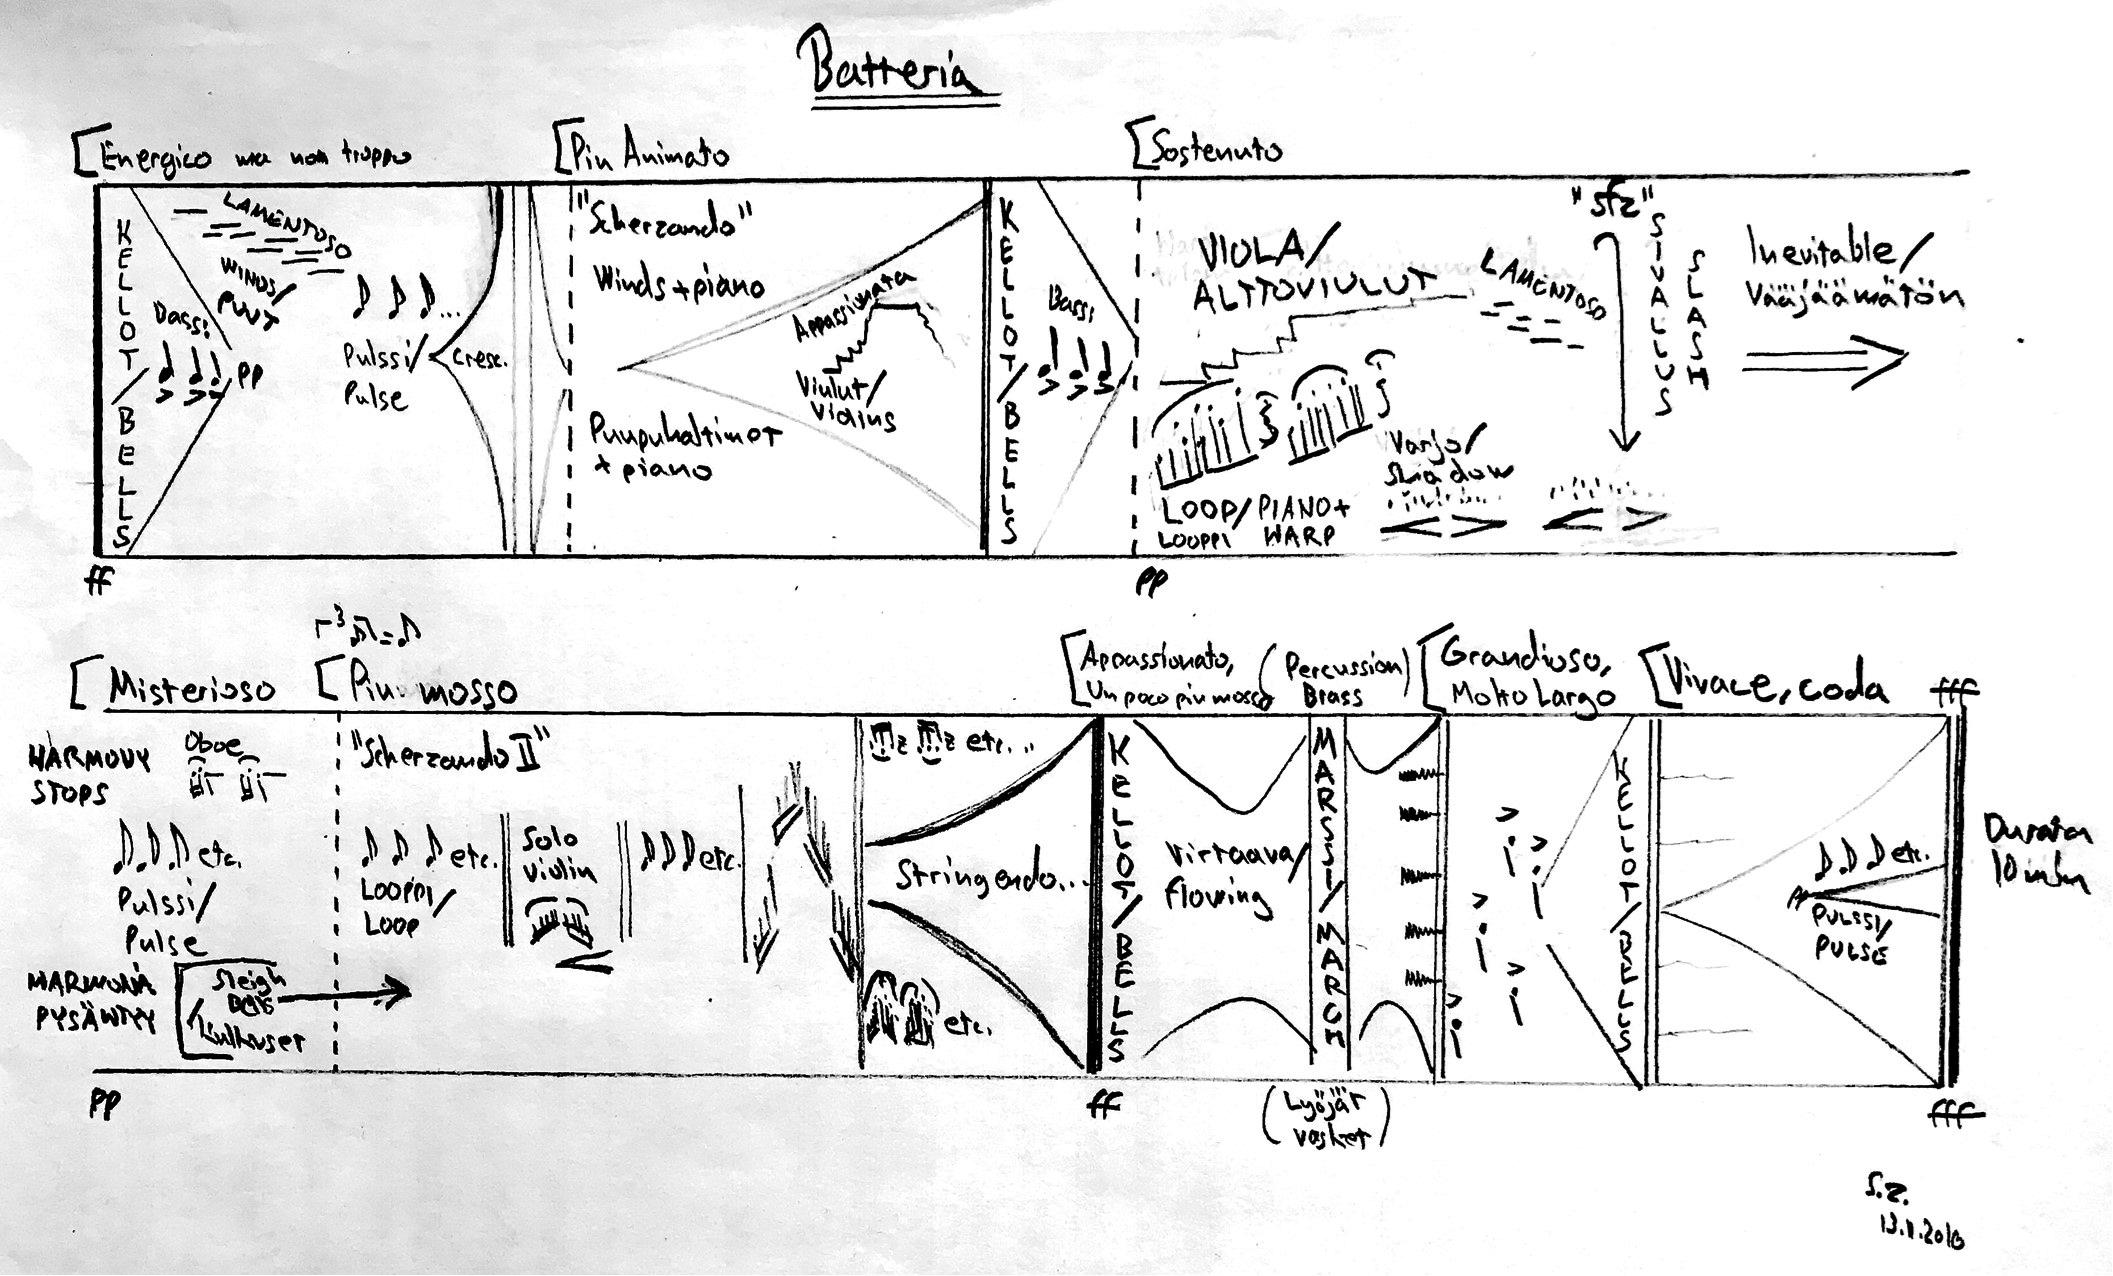 Batteria
Energico ma non troppo
Piu Animato
Sostenuto
KELLOT/BELLS
LAMENTOSO
WINDS/
PUUT
Bassi
pp
Pulssi/
Pulse
cresc.
"Scherzando"
Winds + piano
Puupuhaltimet
+ piano
Appassionata
Viulut/
Violins
KELLOT/BELLS
Bassi
VIOLA/
ALTTOVIULUT
LAMENTOSO
LOOP/
LOOPPI
PIANO+
WARP
Varjo/
Shadow
"sfz"
SIVALLUS
SLASH
Inevitable/
Vääjäämätön
ff
pp
3
Misterioso
Piu mosso
Appassionato,
Un poco piu mosso
(Percussion)
Brass
Grandioso,
Molto Largo
Vivace, coda
fff
HARMONY
STOPS
Oboe
etc.
Pulssi/
Pulse
HARMONIA
PYSÄHTYY
Sleigh
Bells
/Kulkuset
"Scherzando II"
etc.
LOOPPI/
LOOP
Solo
violin
etc.
etc...
Stringendo...
etc.
KELLOT/BELLS
Virtaava/
flowing
MARSSI/MARCH
KELLOT/BELLS
etc.
PULSSI/
PULSE
Durata
10 min
pp
ff
(Lyöjät
vasket)
fff
S.Z.